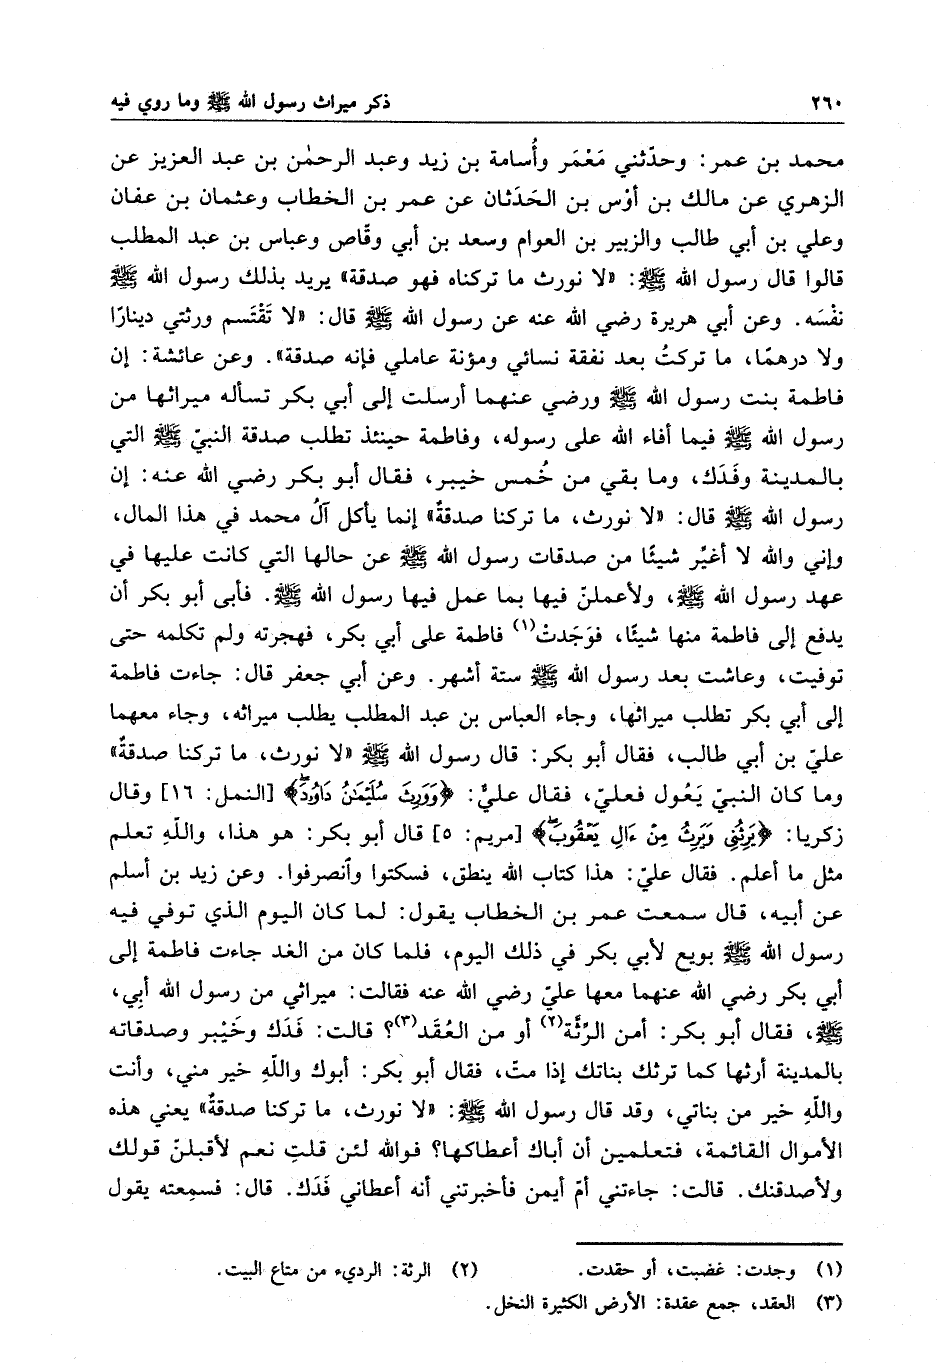 ٢٦٠ ذكر ميراث رسول الله ﷺ وما روي فيه
محمد بن عمر: وحدّثني مَعْمَر وأُسامة بن زيد وعبد الرحمٰن بن عبد العزيز عن
الزهري عن مالك بن أوْس بن الحَدَثان عن عمر بن الخطاب وعثمان بن عفان
وعلي بن أبي طالب والزبير بن العوام وسعد بن أبي وقّاص وعباس بن عبد المطلب
قالوا قال رسول الله ﷺ: «لا نورث ما تركناه فهو صدقة» يريد بذلك رسول الله ﷺ
نفْسَه. وعن أبي هريرة رضي الله عنه عن رسول الله ﷺ قال: «لا تَقْتَسم ورثتي دينارًا
ولا درهمًا، ما تركتُ بعد نفقة نسائي ومؤنة عاملي فإنه صدقة». وعن عائشة: إن
فاطمة بنت رسول الله ﷺ ورضي عنهما أرسلت إلى أبي بكر تسأله ميراثها من
رسول الله ﷺ فيما أفاء الله على رسوله، وفاطمة حينئذ تطلب صدقة النبيّ ﷺ التي
بالمدينة وفَدَك، وما بقي من خُمس خيبر، فقال أبو بكر رضي الله عنه: إن
رسول الله ﷺ قال: «لا نورث، ما تركنا صدقةٌ» إنما يأكل آلُ محمد في هذا المال،
وإني والله لا أغيِّر شيئًا من صدقات رسول الله ﷺ عن حالها التي كانت عليها في
عهد رسول الله ﷺ، ولأعملنّ فيها بما عمل فيها رسول الله ﷺ. فأبى أبو بكر أن
يدفع إلى فاطمة منها شيئًا، فوَجَدتْ(١) فاطمة على أبي بكر، فهجرته ولم تكلمه حتى
توفيت، وعاشت بعد رسول الله ﷺ ستة أشهر. وعن أبي جعفر قال: جاءت فاطمة
إلى أبي بكر تطلب ميراثها، وجاء العباس بن عبد المطلب يطلب ميراثه، وجاء معهما
عليّ بن أبي طالب، فقال أبو بكر: قال رسول الله ﷺ «لا نورث، ما تركنا صدقةٌ»
وما كان النبيّ يَعُول فعليّ، فقال عليٌّ: ﴿وَوَرِثَ سُلَيْمَٰنُ دَاوُۥدَۖ﴾ [النمل: ١٦] وقال
زكريا: ﴿يَرِثُنِي وَيَرِثُ مِنْ ءَالِ يَعْقُوبَۖ﴾ [مريم: ٥] قال أبو بكر: هو هذا، واللَّهِ تعلم
مثل ما أعلم. فقال عليّ: هذا كتاب الله ينطق، فسكتوا وٱنصرفوا. وعن زيد بن أسلم
عن أبيه، قال سمعت عمر بن الخطاب يقول: لما كان اليوم الذي توفي فيه
رسول الله ﷺ بويع لأبي بكر في ذلك اليوم، فلما كان من الغد جاءت فاطمة إلى
أبي بكر رضي الله عنهما معها عليّ رضي الله عنه فقالت: ميراثي من رسول الله أبِي،
ﷺ، فقال أبو بكر: أمن الرِّثَّة(٢) أو من العُقَد(٣)؟ قالت: فَدَك وخَيْبر وصدقاته
بالمدينة أرثها كما ترثك بناتك إذا متّ، فقال أبو بكر: أبوك واللَّهِ خير مني، وأنت
واللَّهِ خير من بناتي، وقد قال رسول الله ﷺ: «لا نورث، ما تركنا صدقةٌ» يعني هذه
الأموال القائمة، فتعلمين أن أباك أعطاكها؟ فوالله لئن قلتِ نعم لأقبلنّ قولك
ولأصدقنك. قالت: جاءتني أمّ أيمن فأخبرتني أنه أعطاني فَدَك. قال: فسمِعته يقول
(١) وجدت: غضبت، أو حقدت. (٢) الرثة: الرديء من متاع البيت.
(٣) العقد، جمع عقدة: الأرض الكثيرة النخل.